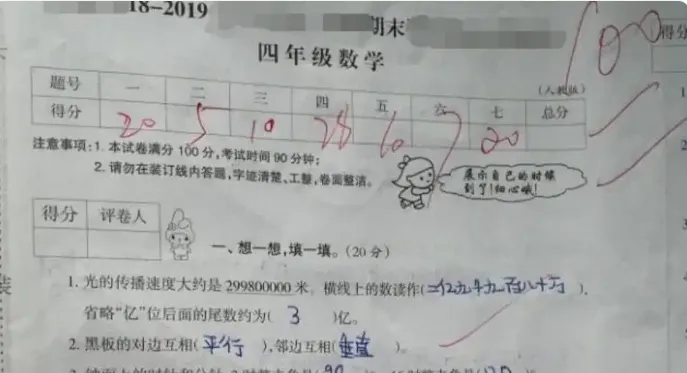 18-2019
期末
四年级数学
100
得分
(人教版)
题号 一 二 三 四 五 六 七 总分
得分 20 5 10 28 10 7 20
注意事项:1. 本试卷满分 100 分,考试时间 90 分钟;
2. 请勿在装订线内答题,字迹清楚、工整,卷面整洁。
展示自己的时候
到了!细心哦!
得分 评卷人
一、想一想,填一填。(20 分)
1. 光的传播速度大约是 299800000 米。横线上的数读作(二亿九千九百八十万).
省略“亿”位后面的尾数约为( 3 )亿。
2. 黑板的对边互相(平行),邻边互相(垂直)。
装